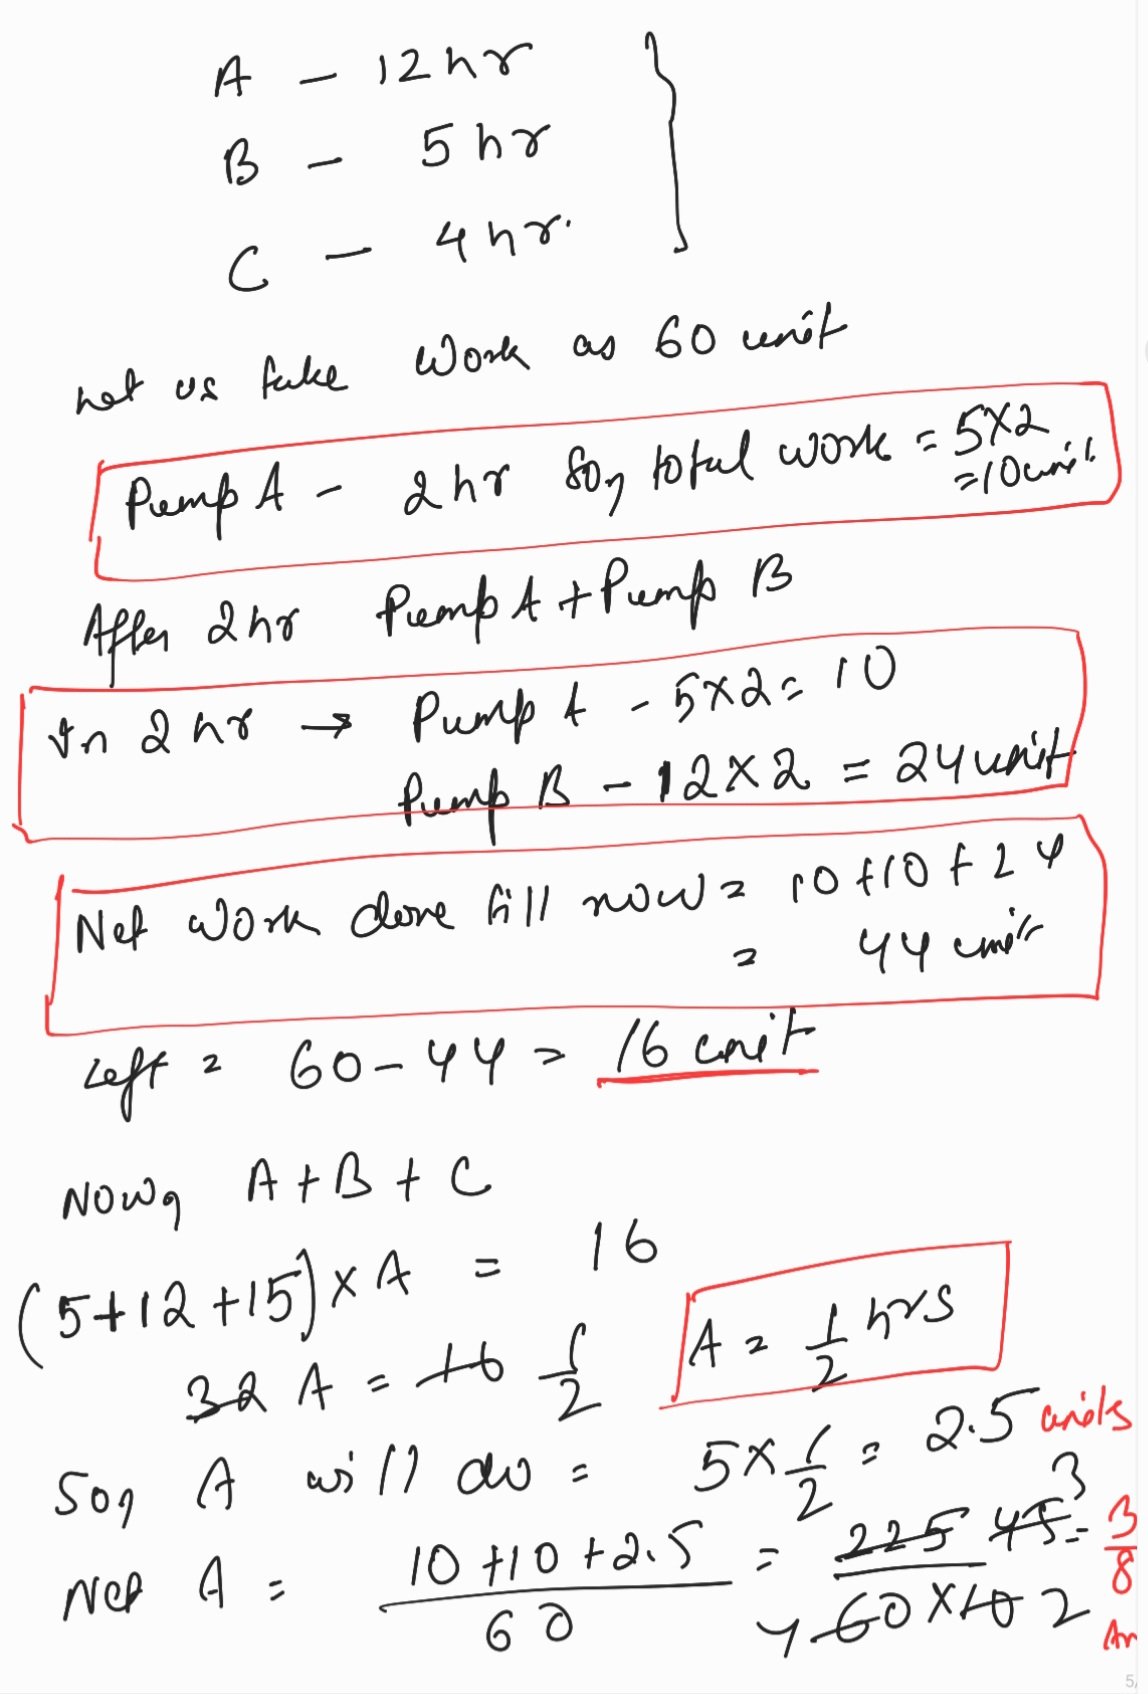 A - 12hr
B - 5hr
C - 4hr.
Let us take work as 60 unit
Pump A - 2hr So, total work = 5x2
=10 unit
After 2hr Pump A + Pump B
In 2hr → Pump A - 5x2 = 10
Pump B - 12x2 = 24 unit
Net work done till now = 10+10+24
= 44 unit
Left = 60-44 = 16 unit
Now, A+B+C
(5+12+15)xA = 16
32 A = 16 1/2
A = 1/2 hrs
So, A will do = 5x1/2 = 2.5 units
3
Net A = (10+10+2.5)/60 = 225 45/4 60x10 2 = 3/8
An
5